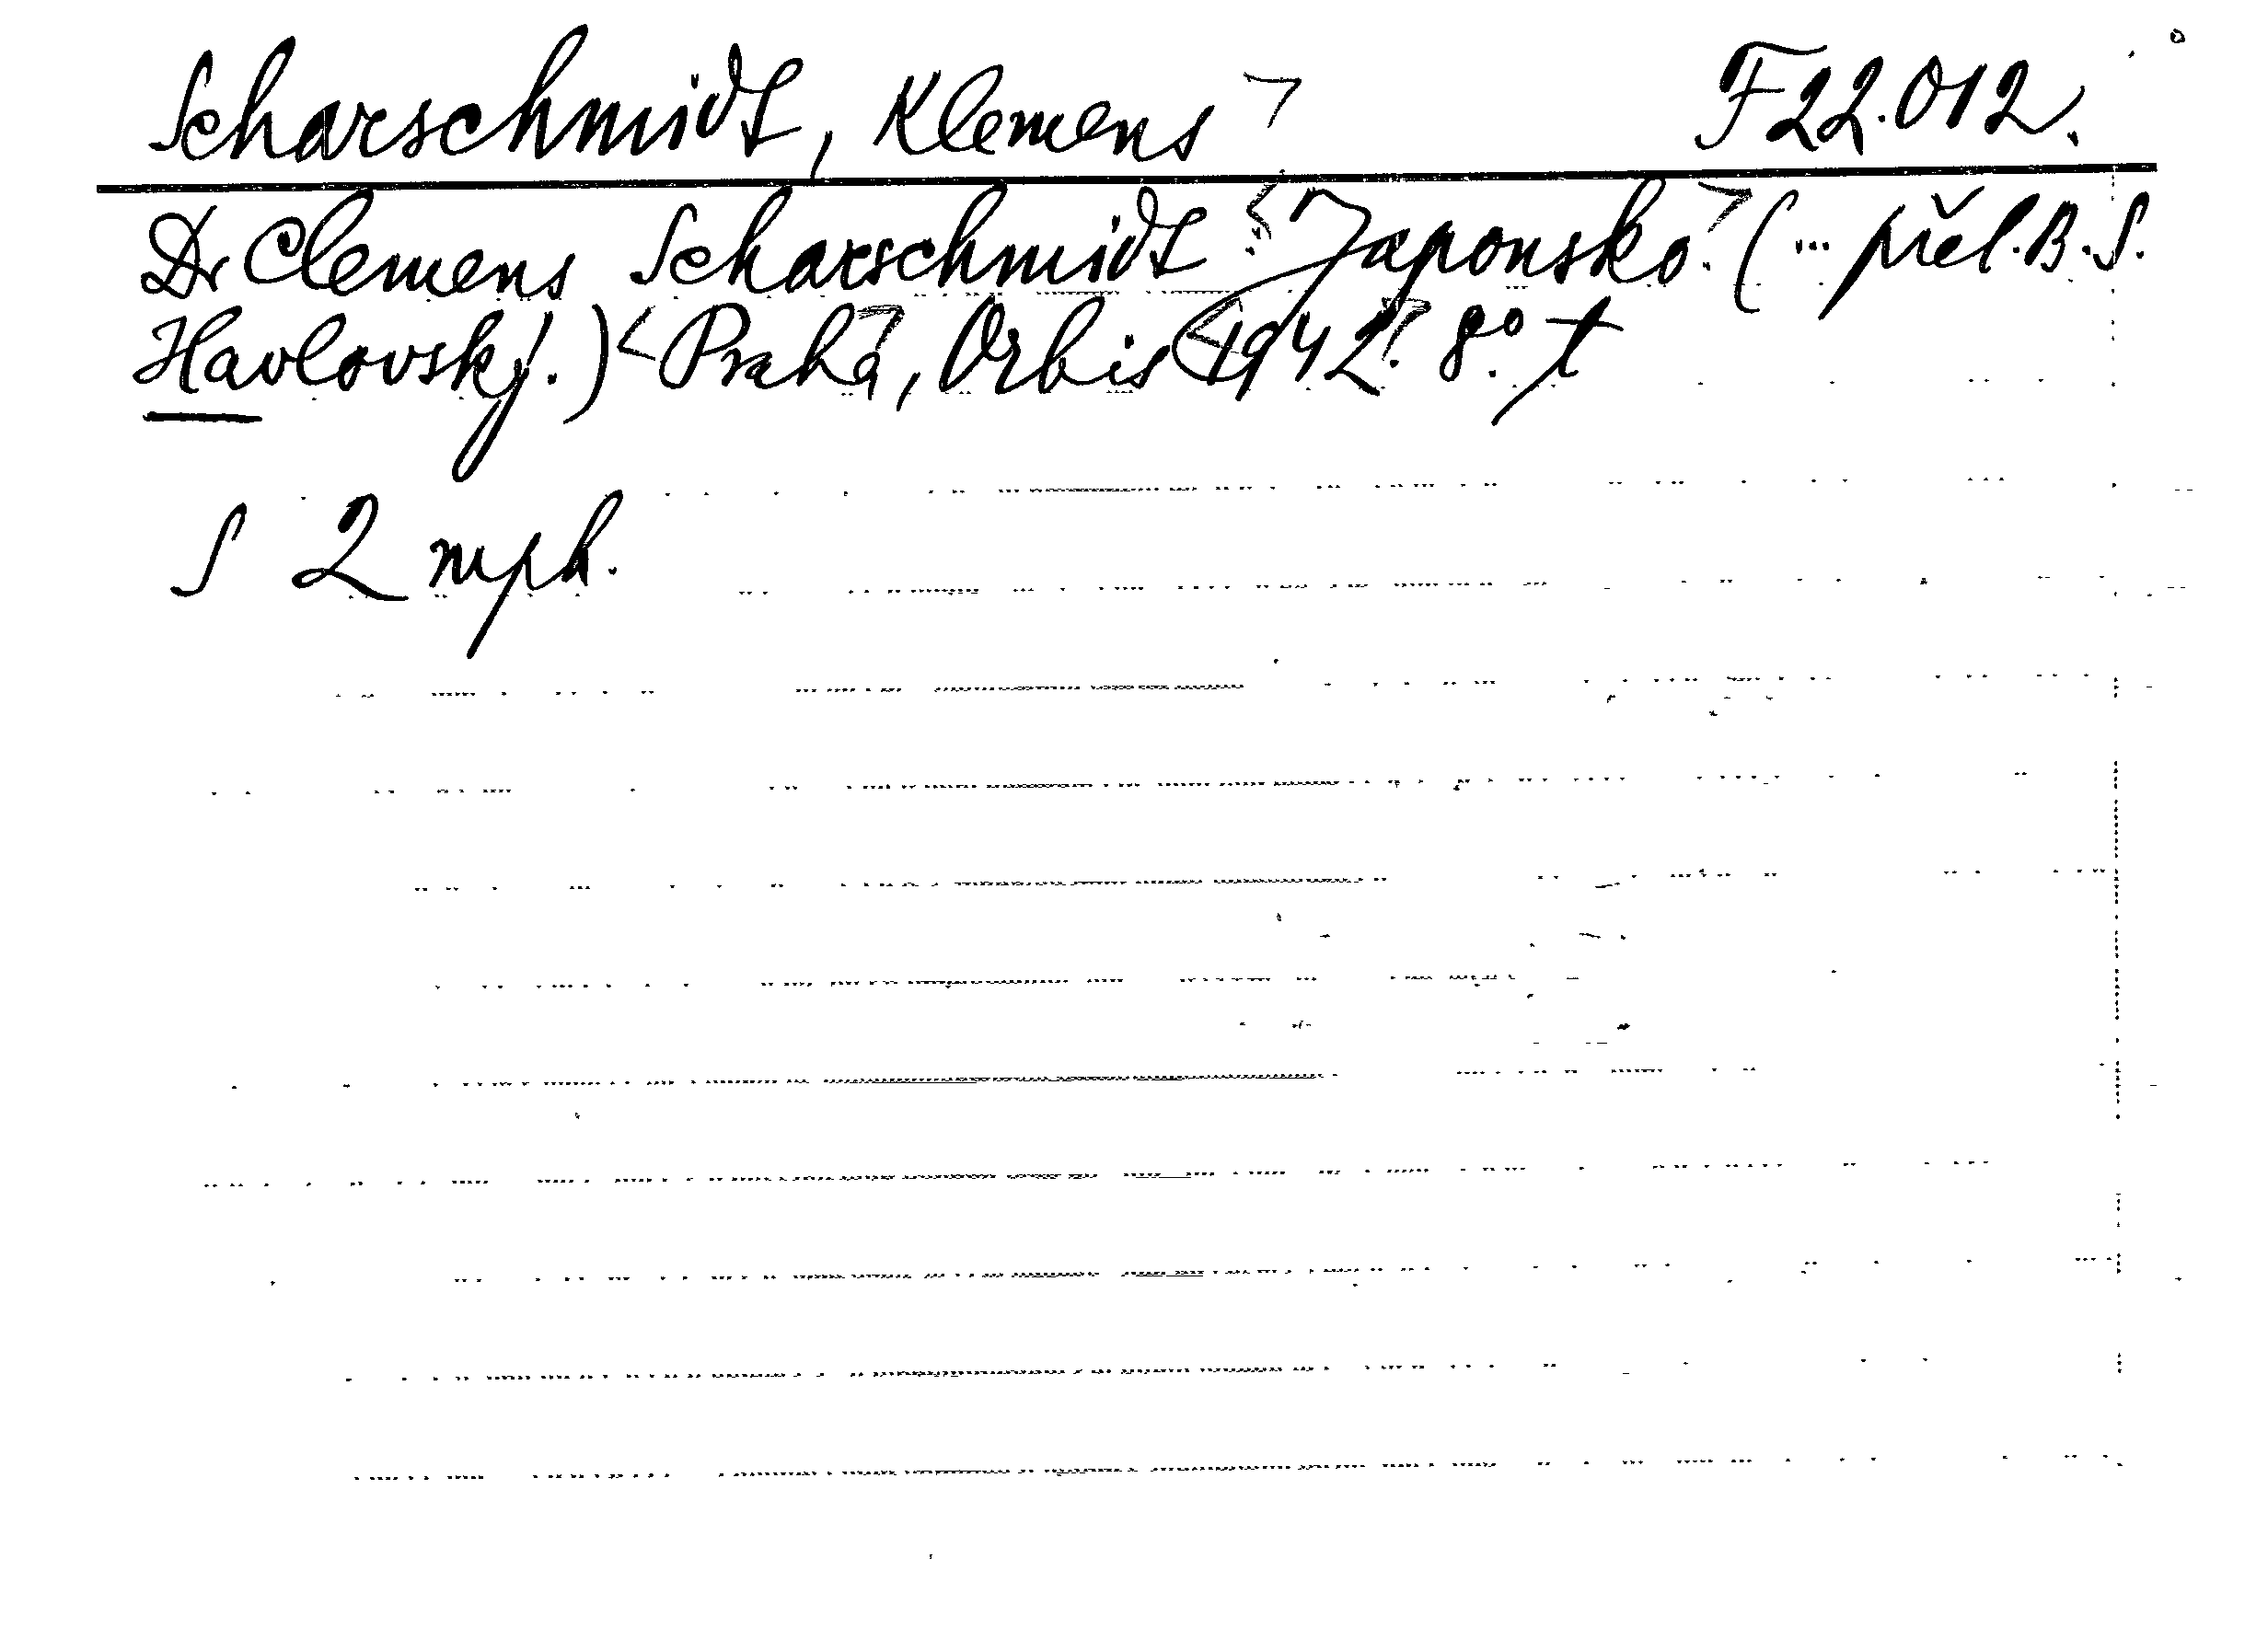 Scharschmidt, Klemens F 22.012.
Dr Clemens Scharschmidt: Japonsko. (... přel. B. S.
Havlovský.) Praha, Orbis 1942. 8° t
S 2 mph.